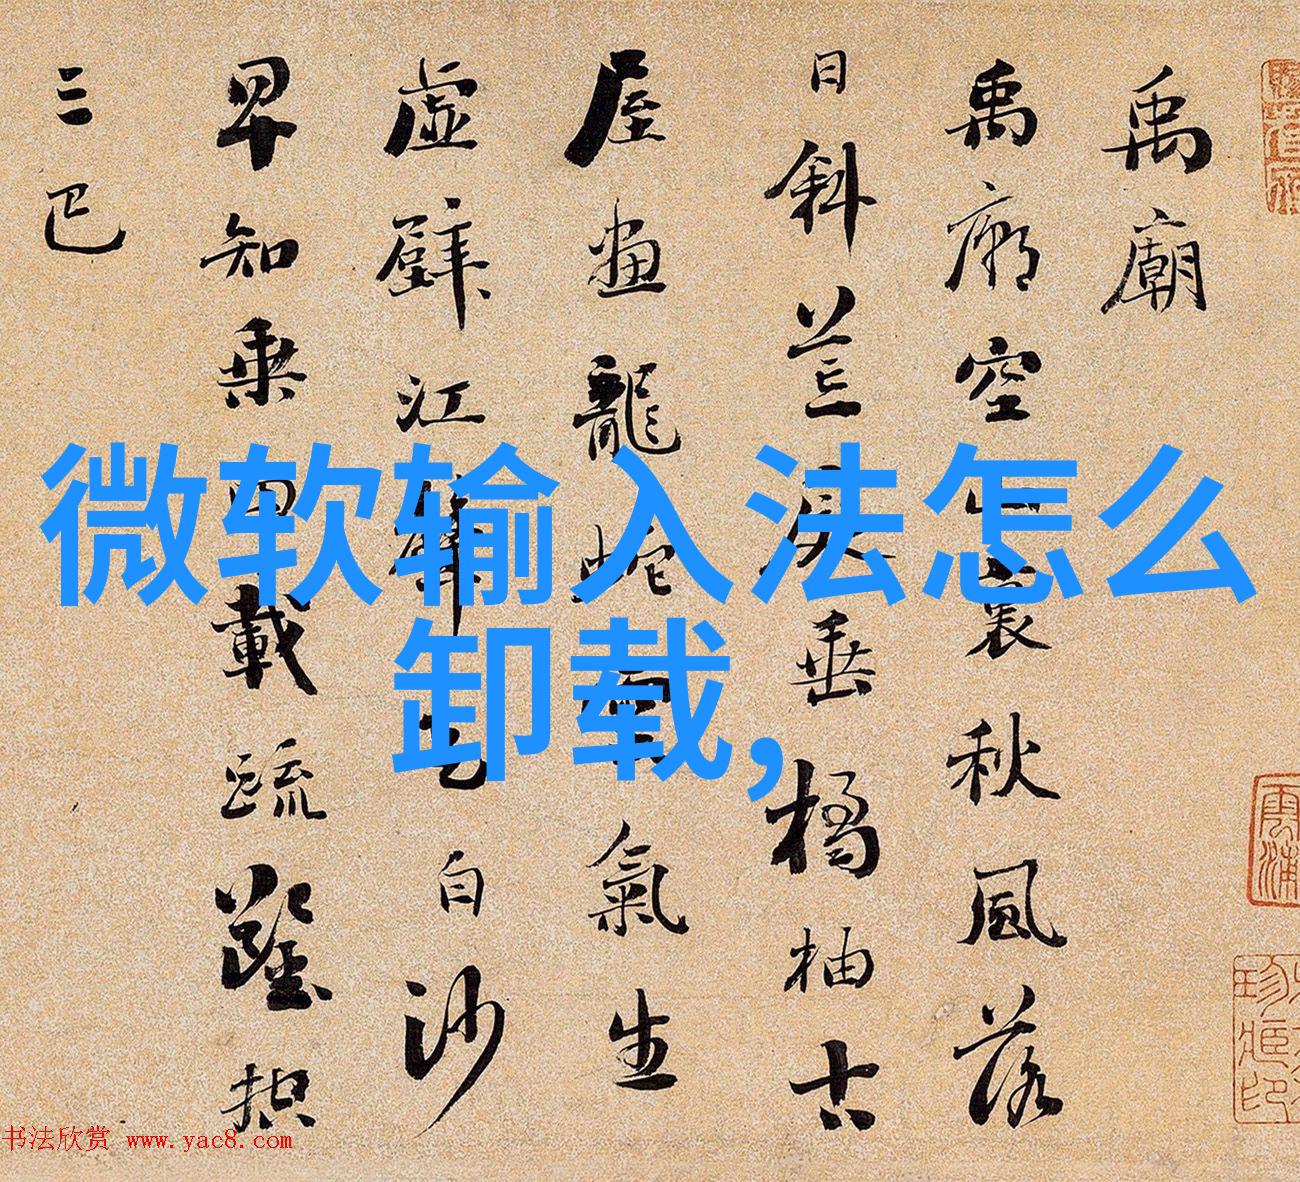 微软输入法怎么
卸载,
禹廟
禹廟空山裏秋風落
日斜荒庭垂橘柚古
屋畫龍蛇雲氣生
虛壁江聲走白沙
早知乘四載疏鑿控
三巴
书法欣赏 www.yac8.com